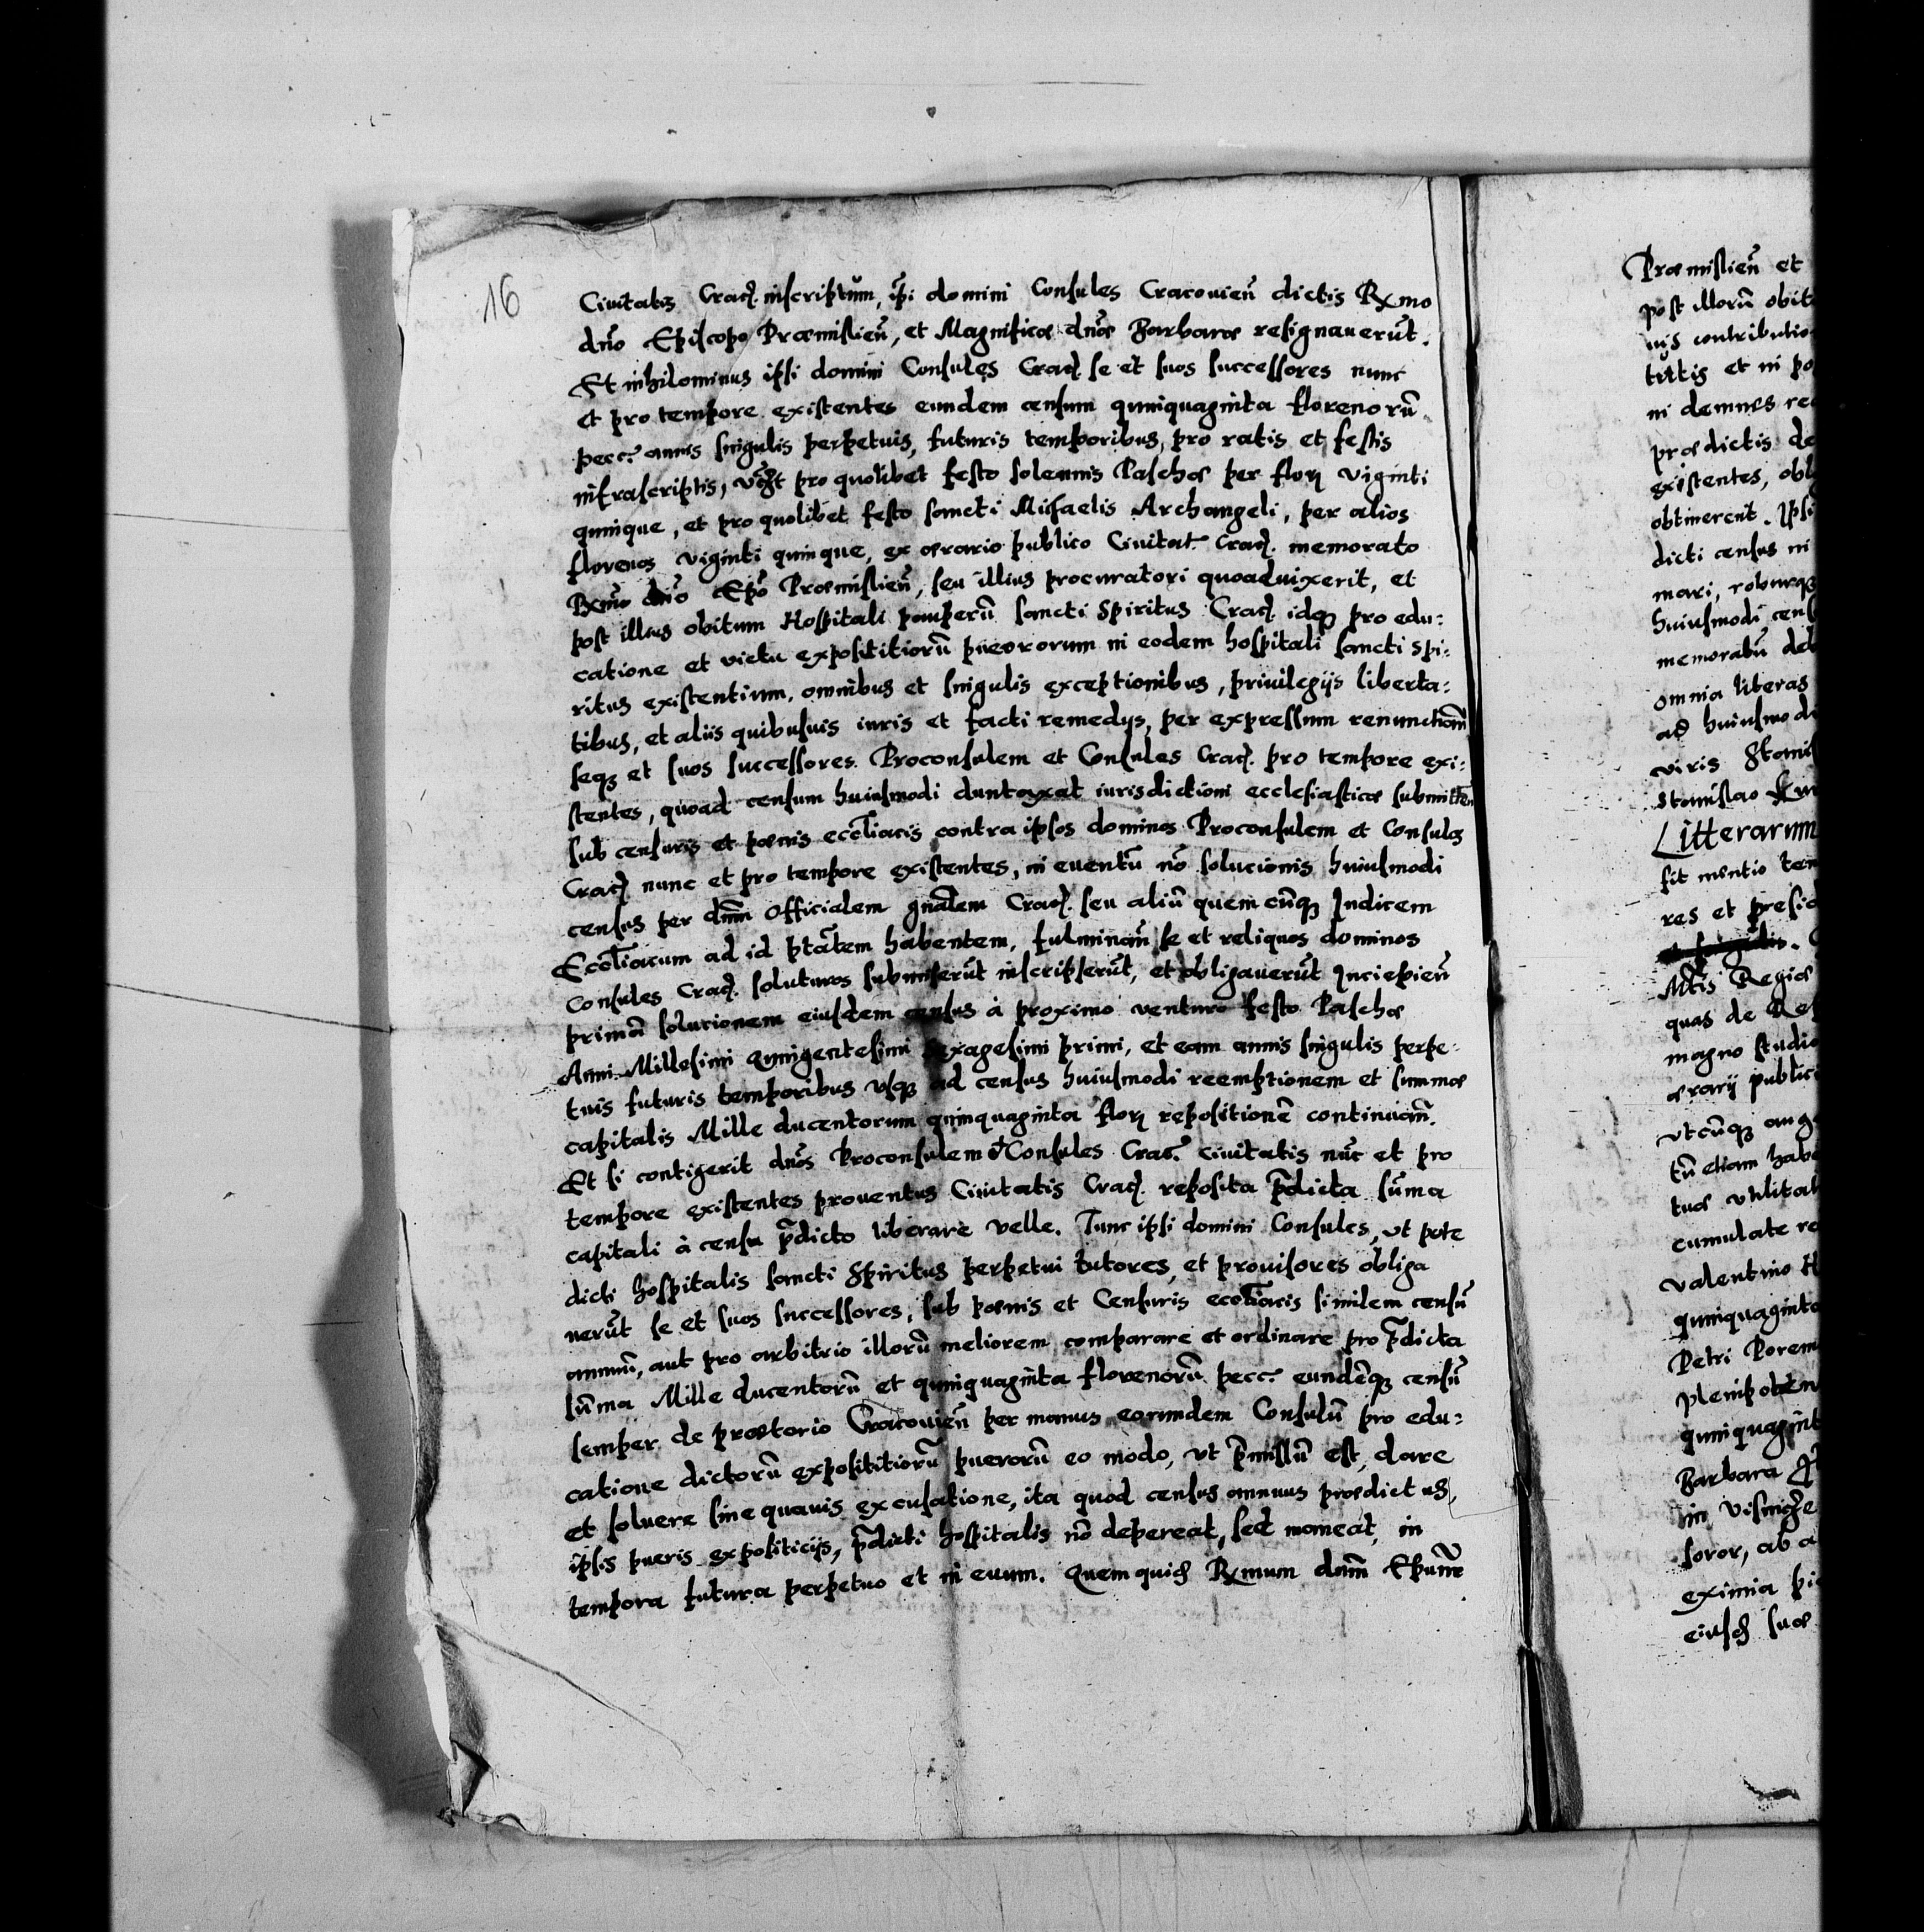 16
Civitatis Crac. inscriptum, ipi domini Consules Cracovien dictis Rxmo
dno Episcopo Præmislien, et Magnificæ dnæ Barbaræ resignaverut.
Et nihilominus ipsi domini Consules Crac. se et suos successores nunc
et pro tempore existentes eundem censum quinquaginta florenorū
pecc. annis singulis perpetuis, futuris temporibus, pro ratis et festis
infrascriptis, vczt pro quolibet festo solennis Paschæ per flor viginti
quinque, et pro quolibet festo sancti Misaelis Archangeli, per alios
florenos viginti quinque, ex ærario publico Civitat. Crac. memorato
Rxmo dno Epo Præmislien, seu illius procuratori quoad vixerit, et
post illius obitum Hospitali pauperū sancti Spiritus Crac. idq pro edu:
catione et victu exposititiorū puerorum in eodem hospitali sancti Spi:
ritus existentium. omnibus et singulis exceptionibus, privilegijs liberta:
tibus, et aliis quibusuis iuris et facti remedijs, per expressum renunctiam
seq et suos successores. Proconsulem et Consules Crac. pro tempore exi:
stentes, quoad censum huiusmodi duntaxat iurisdictioni ecclesiasticæ submitten
sub censuris et poenis eccliacis contra ipsos dominos Proconsulem et Consules
Crac. nunc et pro tempore existentes, in eventū nō solucionis huiusmodi
census per dnm Officialem gnalem Crac. seu aliū quemcūq Iudicem
Eccliacum ad id ptatem habentem, fulminan se et reliquos dominos
Consules Crac. soluturos submiserūt inscripserūt, et obligaverūt Incipien
primā solucionem eiusdem census à proximo venturo festo Paschæ
Anni Millesimi Quingentesimi Sexagesimi primi, et eam annis singulis perpe:
tuis futuris temporibus usq ad census huiusmodi reemptionem et summæ
capitalis Mille ducentorum quinquaginta flor repositionē continuam.
Et si contigerit dnos Proconsulem et Consules Crac. civitatis nūc et pro
tempore existentes proventus Civitatis Crac. reposita pdicta sūma
capitali à censu pdicto liberare velle. Tunc ipsi domini Consules, ut pote
dicti hospitalis sancti Spiritus perpetui tutores, et provisores obliga
verūt se et suos successores, sub poenis et Censuris eccliacis similem censū
annuū, aut pro arbitrio illorū meliorem comparare et ordinare pro pdicta
sūma Mille ducentorū et quinquaginta florenorū pecc. eundēq censū
semper de prætorio Cracovien per manus eorundem Consulū pro edu:
catione dictorū exposititiorū puerorū eo modo, ut pmissū est, dare
et solvere sine quavis excusatione, ita quod census annuus prædictus,
ipsis pueris expositicijs, pdicti hospitalis nō depereat, sed maneat, in
tempora futura perpetuo et in euum. Quem quid Rxmum dnm Epum
Præmislien et
post illorū obit
contributio
et in po
demnes re
prædictis de
existentes, obl
obtinerent. Ipsi
dicti census in
mari, roburq
huiusmodi cens
memoratū deb
omnia literas
ad huiusmodi
viris Stanis
Stanislao
Litterarum
fit mentio ten
res et presid
Mtis Regiæ
quas de Re
magno studio
ærarij public
utcūq aug
tū etiam hab
tuæ utilitat
cumulate re
Valentino H
quinquaginta
Petri Porem
plenipoten
quinquagint
Barbara
in Visnicze
soror, ab a
eximia pi
eiusd suæ